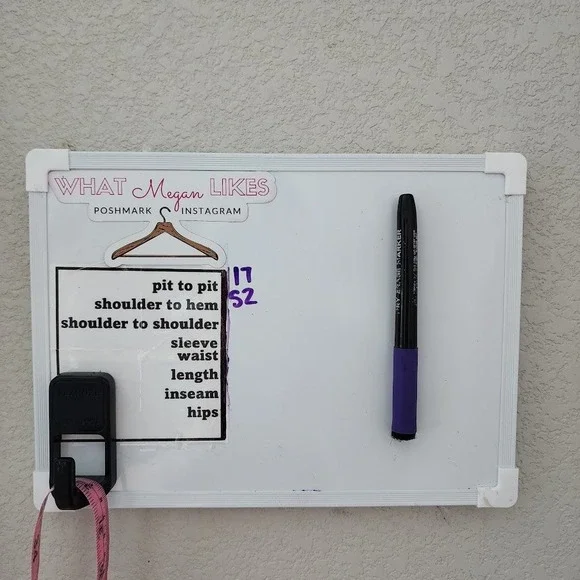 WHAT Megan LIKES
POSHMARK INSTAGRAM
pit to pit 17
shoulder to hem 52
shoulder to shoulder
sleeve
waist
length
inseam
hips
DRY ERASE MARKER